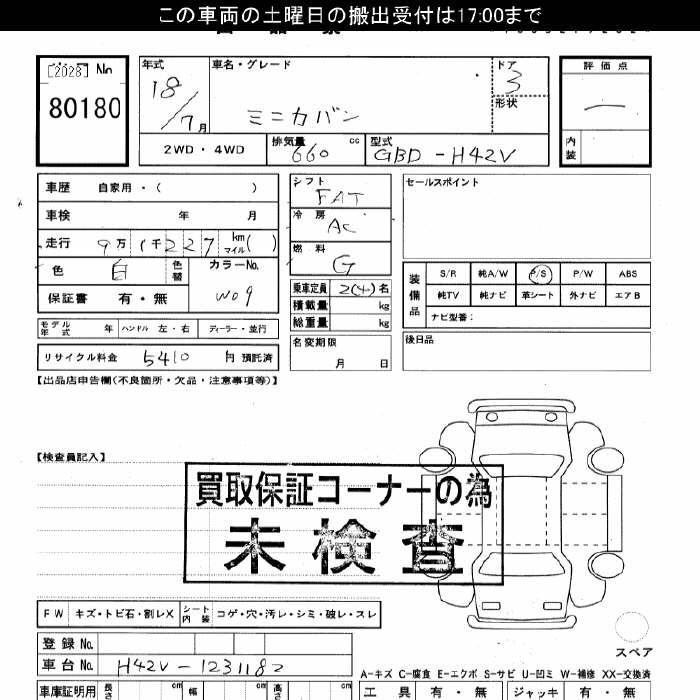 この車両の土曜日の搬出受付は17:00まで
[2028] No
80180
年式 車名・グレード ドア 評価点
18/7月 ミニカバン 3 —
形状
内装
2WD・4WD 排気量 660 cc 型式 GBD-H42V
車歴 自家用・( )
車検 年 月
走行 9万1千227 km マイル( )
色 白 色替 カラーNo. W09
保証書 有・無
モデル年式 年 ハンドル 左・右 ディーラー・並行
リサイクル料金 5410 円 預託済
シフト FAT
冷房 AC
燃料 G
乗車定員 2(4)名
積載量 kg
総重量 kg
名変期限
月 日
セールスポイント
装備品 S/R 純A/W P/S P/W ABS
純TV 純ナビ 革シート 外ナビ エアB
ナビ型番:
後日品
【出品店申告欄(不良箇所・欠品・注意事項等)】
【検査員記入】
買取保証コーナーの為
未検査
FW キズ・トビ石・割レX シート内装 コゲ・穴・汚レ・シミ・破レ・スレ
登録No.
車台No. H42V-1231182
スペア
A-キズ C-腐食 E-エクボ S-サビ U-凹ミ W-補修 XX-交換済
車庫証明用 長さ cm 幅 cm 高さ cm 工具 有・無 ジャッキ 有・無